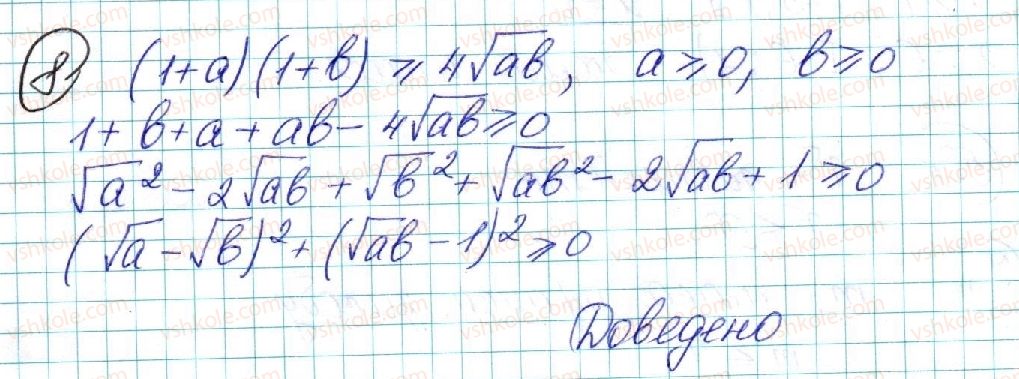 8) (1+a)(1+b) ≥ 4√ab, a≥0, b≥0
1+b+a+ab-4√ab≥0
√a²-2√ab+√b²+√ab²-2√ab+1≥0
(√a-√b)²+(√ab-1)²≥0
Доведено